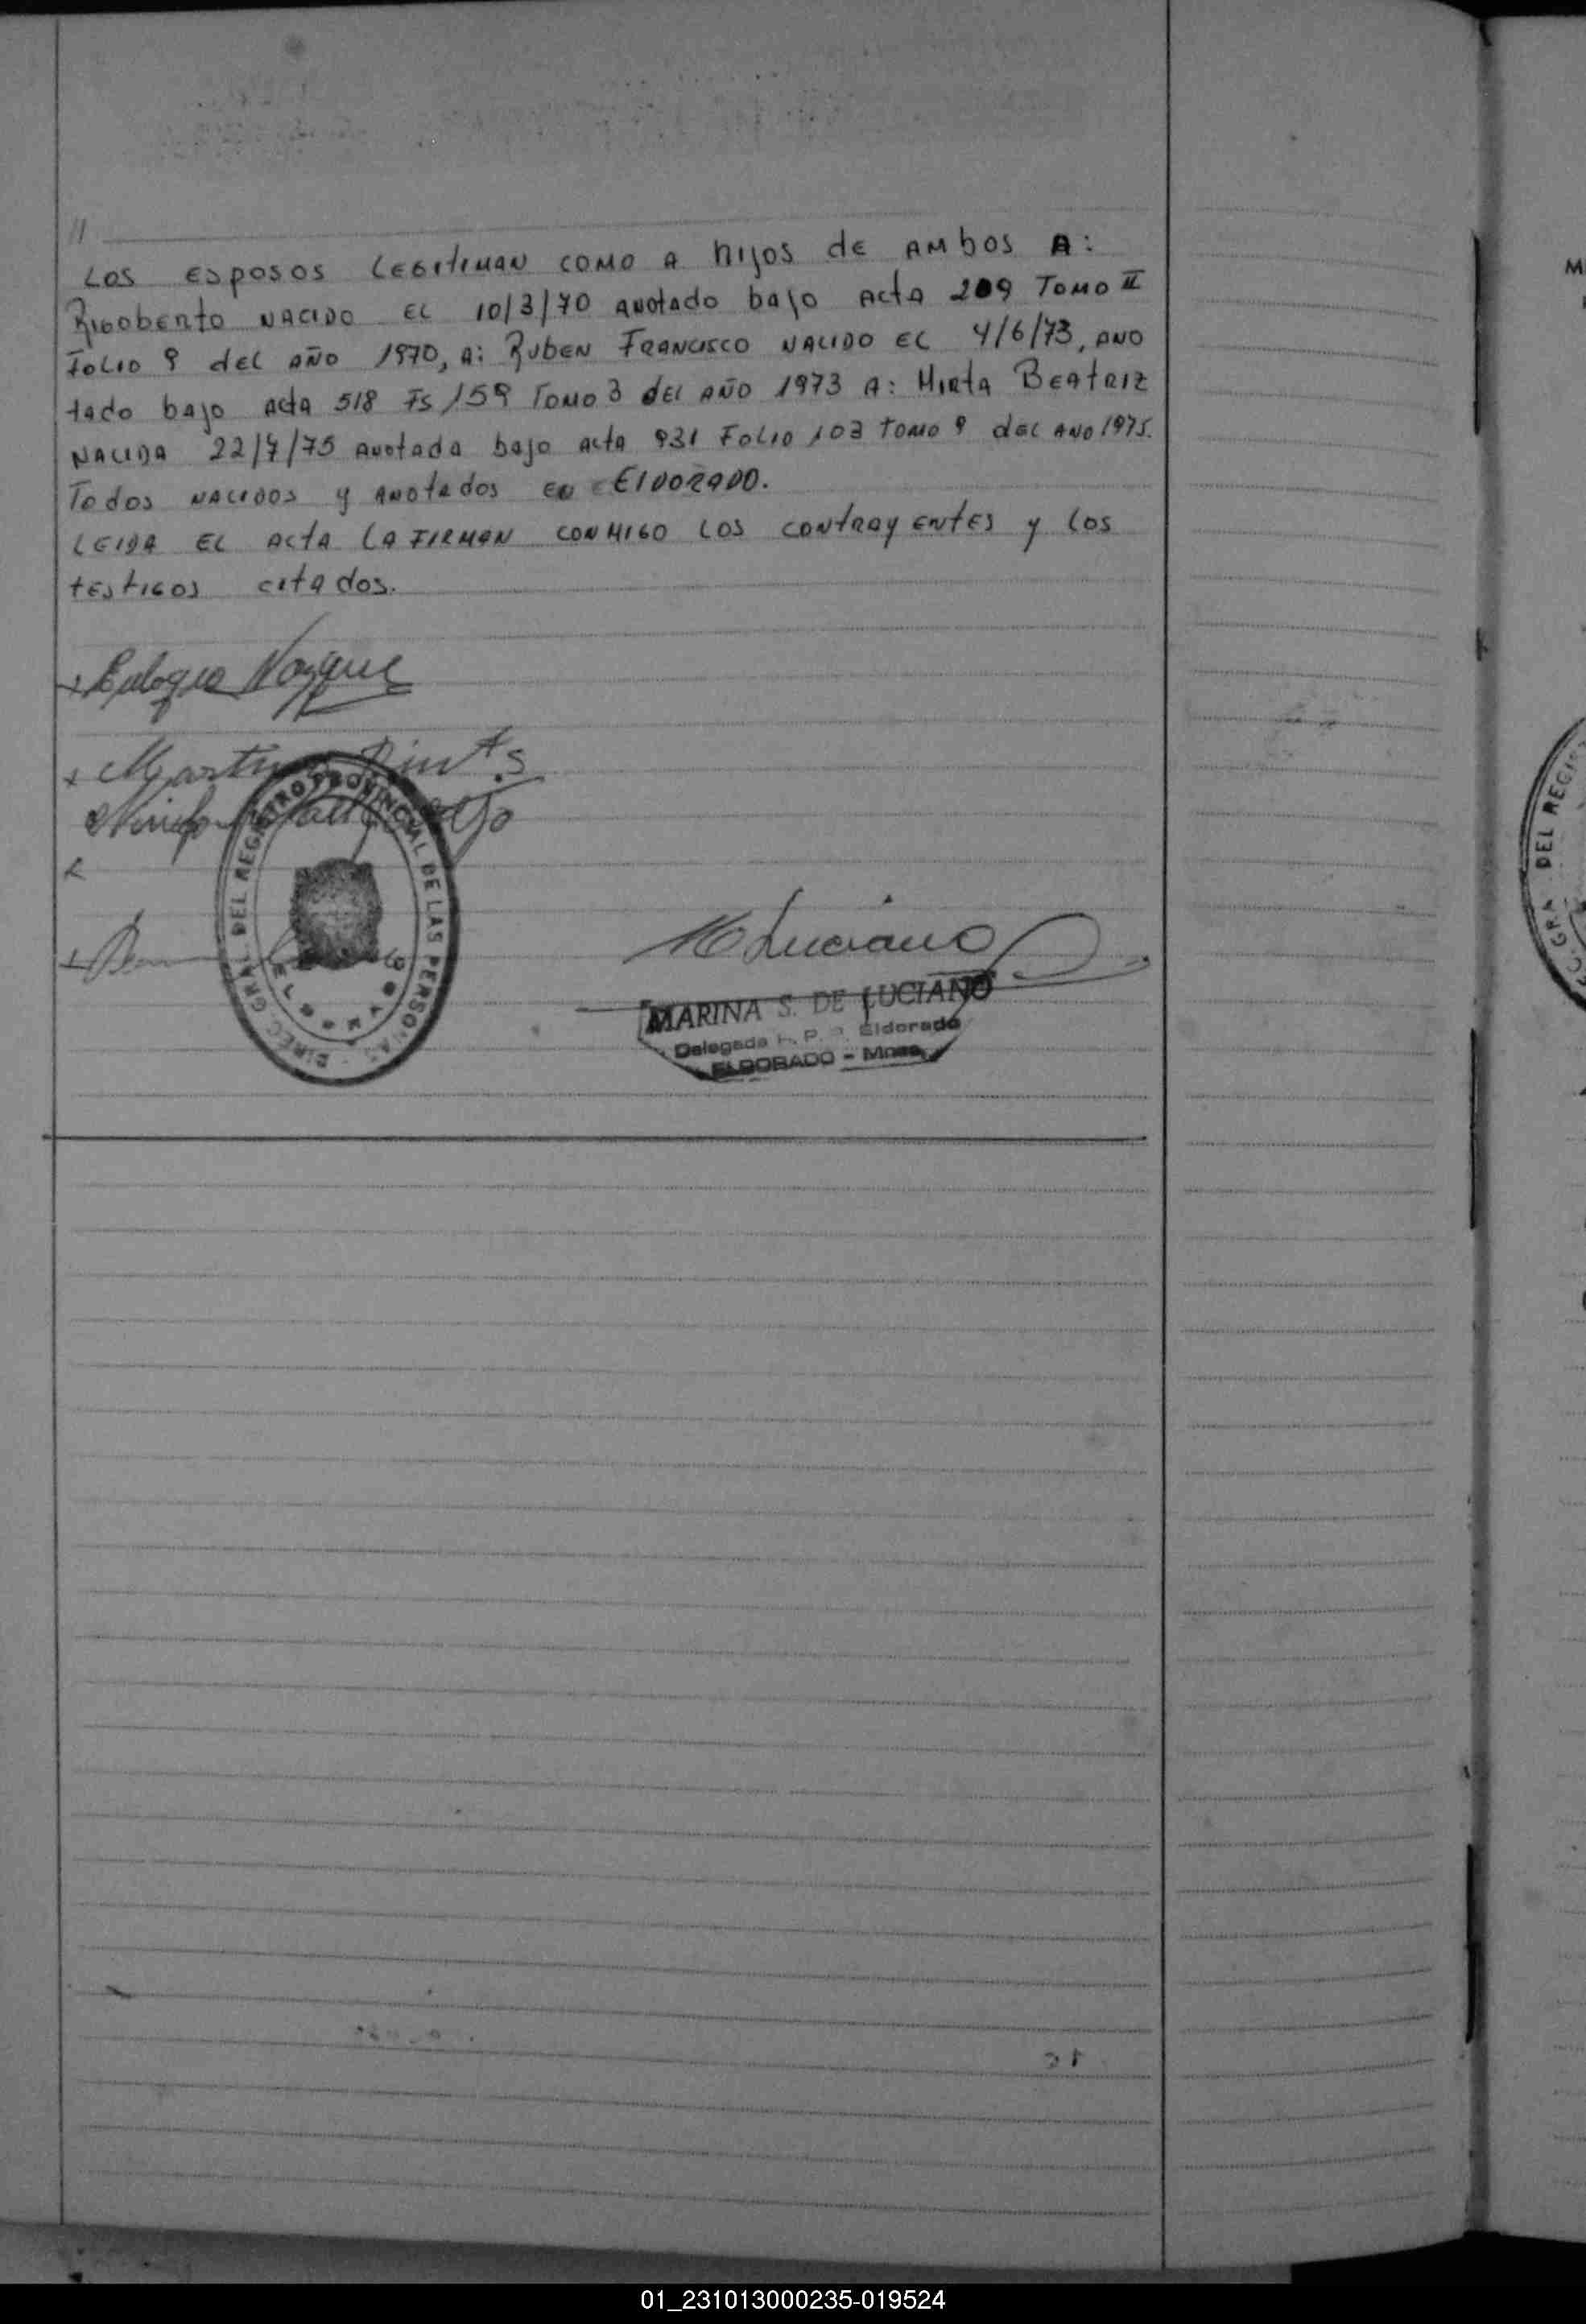 //
LOS ESPOSOS LEGITIMAN COMO A hIJOS dE AMbOS A:
RIGObERto NACIDO EL 10/3/70 ANOtAdo bAJO ActA 209 TOMO II
FOLIO 9 dEL AÑO 1970, A: RUbEN FRANCISCO NACIDO EL 4/6/73, ANO
tAdo bAJO ActA 518 Fs/159 TOMO 3 dEL AÑO 1973 A: MIRtA BEAtRIZ
NACIDA 22/7/75 ANOtAdA bAJO ActA 931 FOLIO 103 TOMO 9 dEL ANO 1975.
TOdOS NACIDOS y ANOtAdOS EN ELDORADO.
LEIDA EL ActA LA FIRMAN CONMIGO LOS CONtRAyENtES y LOS
tEStIGOS CItAdOS.
+ Eulogio
+
DIREC. GRAL. DEL REGISTRO PROVINCIAL DE LAS PERSONAS
ELDORADO
+
M Luciano
MARINA S. DE LUCIANO
Delegada R. P. P. Eldorado
ELDORADO - Mnes.
DEL REGIS
01_231013000235-019524